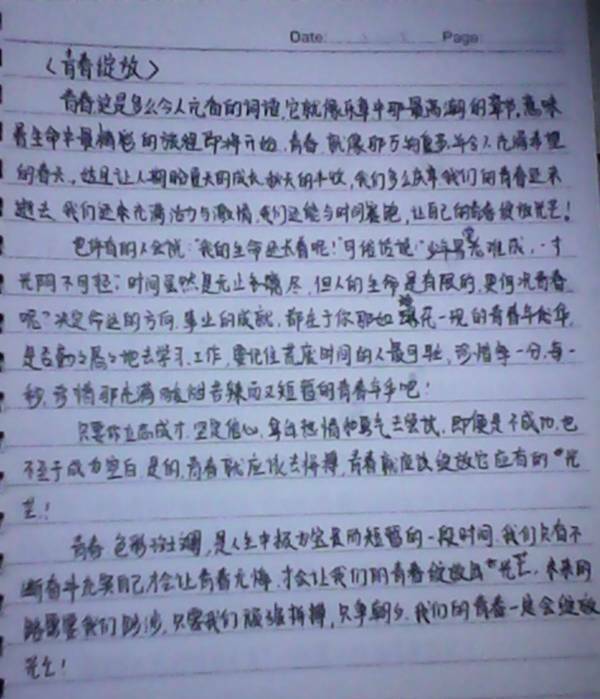 Date: Page:
《青春绽放》
青春这是多么令人充奋的词语,它就像乐章中那最高潮的章节,意味
着生命中最精彩的旅程即将开始,青春,就像那万物复苏,并令人充满希望
的春天,这是让人期盼夏天的成长,秋天的丰收,我们多么庆幸我们的青春还未
逝去,我们还未充满活力与激情,我们还能与时间赛跑,让自己的青春绽放光芒!
也许有的人会说:"我们生命还长着呢!"可俗话说:"少年易老难成,一寸
光阴不可轻;时间虽然是无止无境尽,但人的生命是有限的,更何况青春
呢?"决定命运的方向,事业的成就,都在于你那如昙花一现的青春年华,
是否勤勤恳恳地去学习、工作,要记住荒废时间的人最可耻,珍惜每一分,每一
秒,珍惜那充满酸甜苦辣而又短暂的青春年华吧!
只要你立志成才,坚定信心,拿出热情和勇气去尝试,即便是不成功,也
不至于成为空白,是的,青春就应该去拼搏,青春就应该绽放它应有的"光
芒!
青春,色彩斑斓,是人生中极为宝贵而短暂的一段时间,我们只有不
断奋斗充实自己才会让青春无悔,才会让我们的青春绽放出"光芒,未来的
路需要我们跋涉,只要我们顽强拼搏,只争朝夕,我们的青春一定会绽放
光芒!